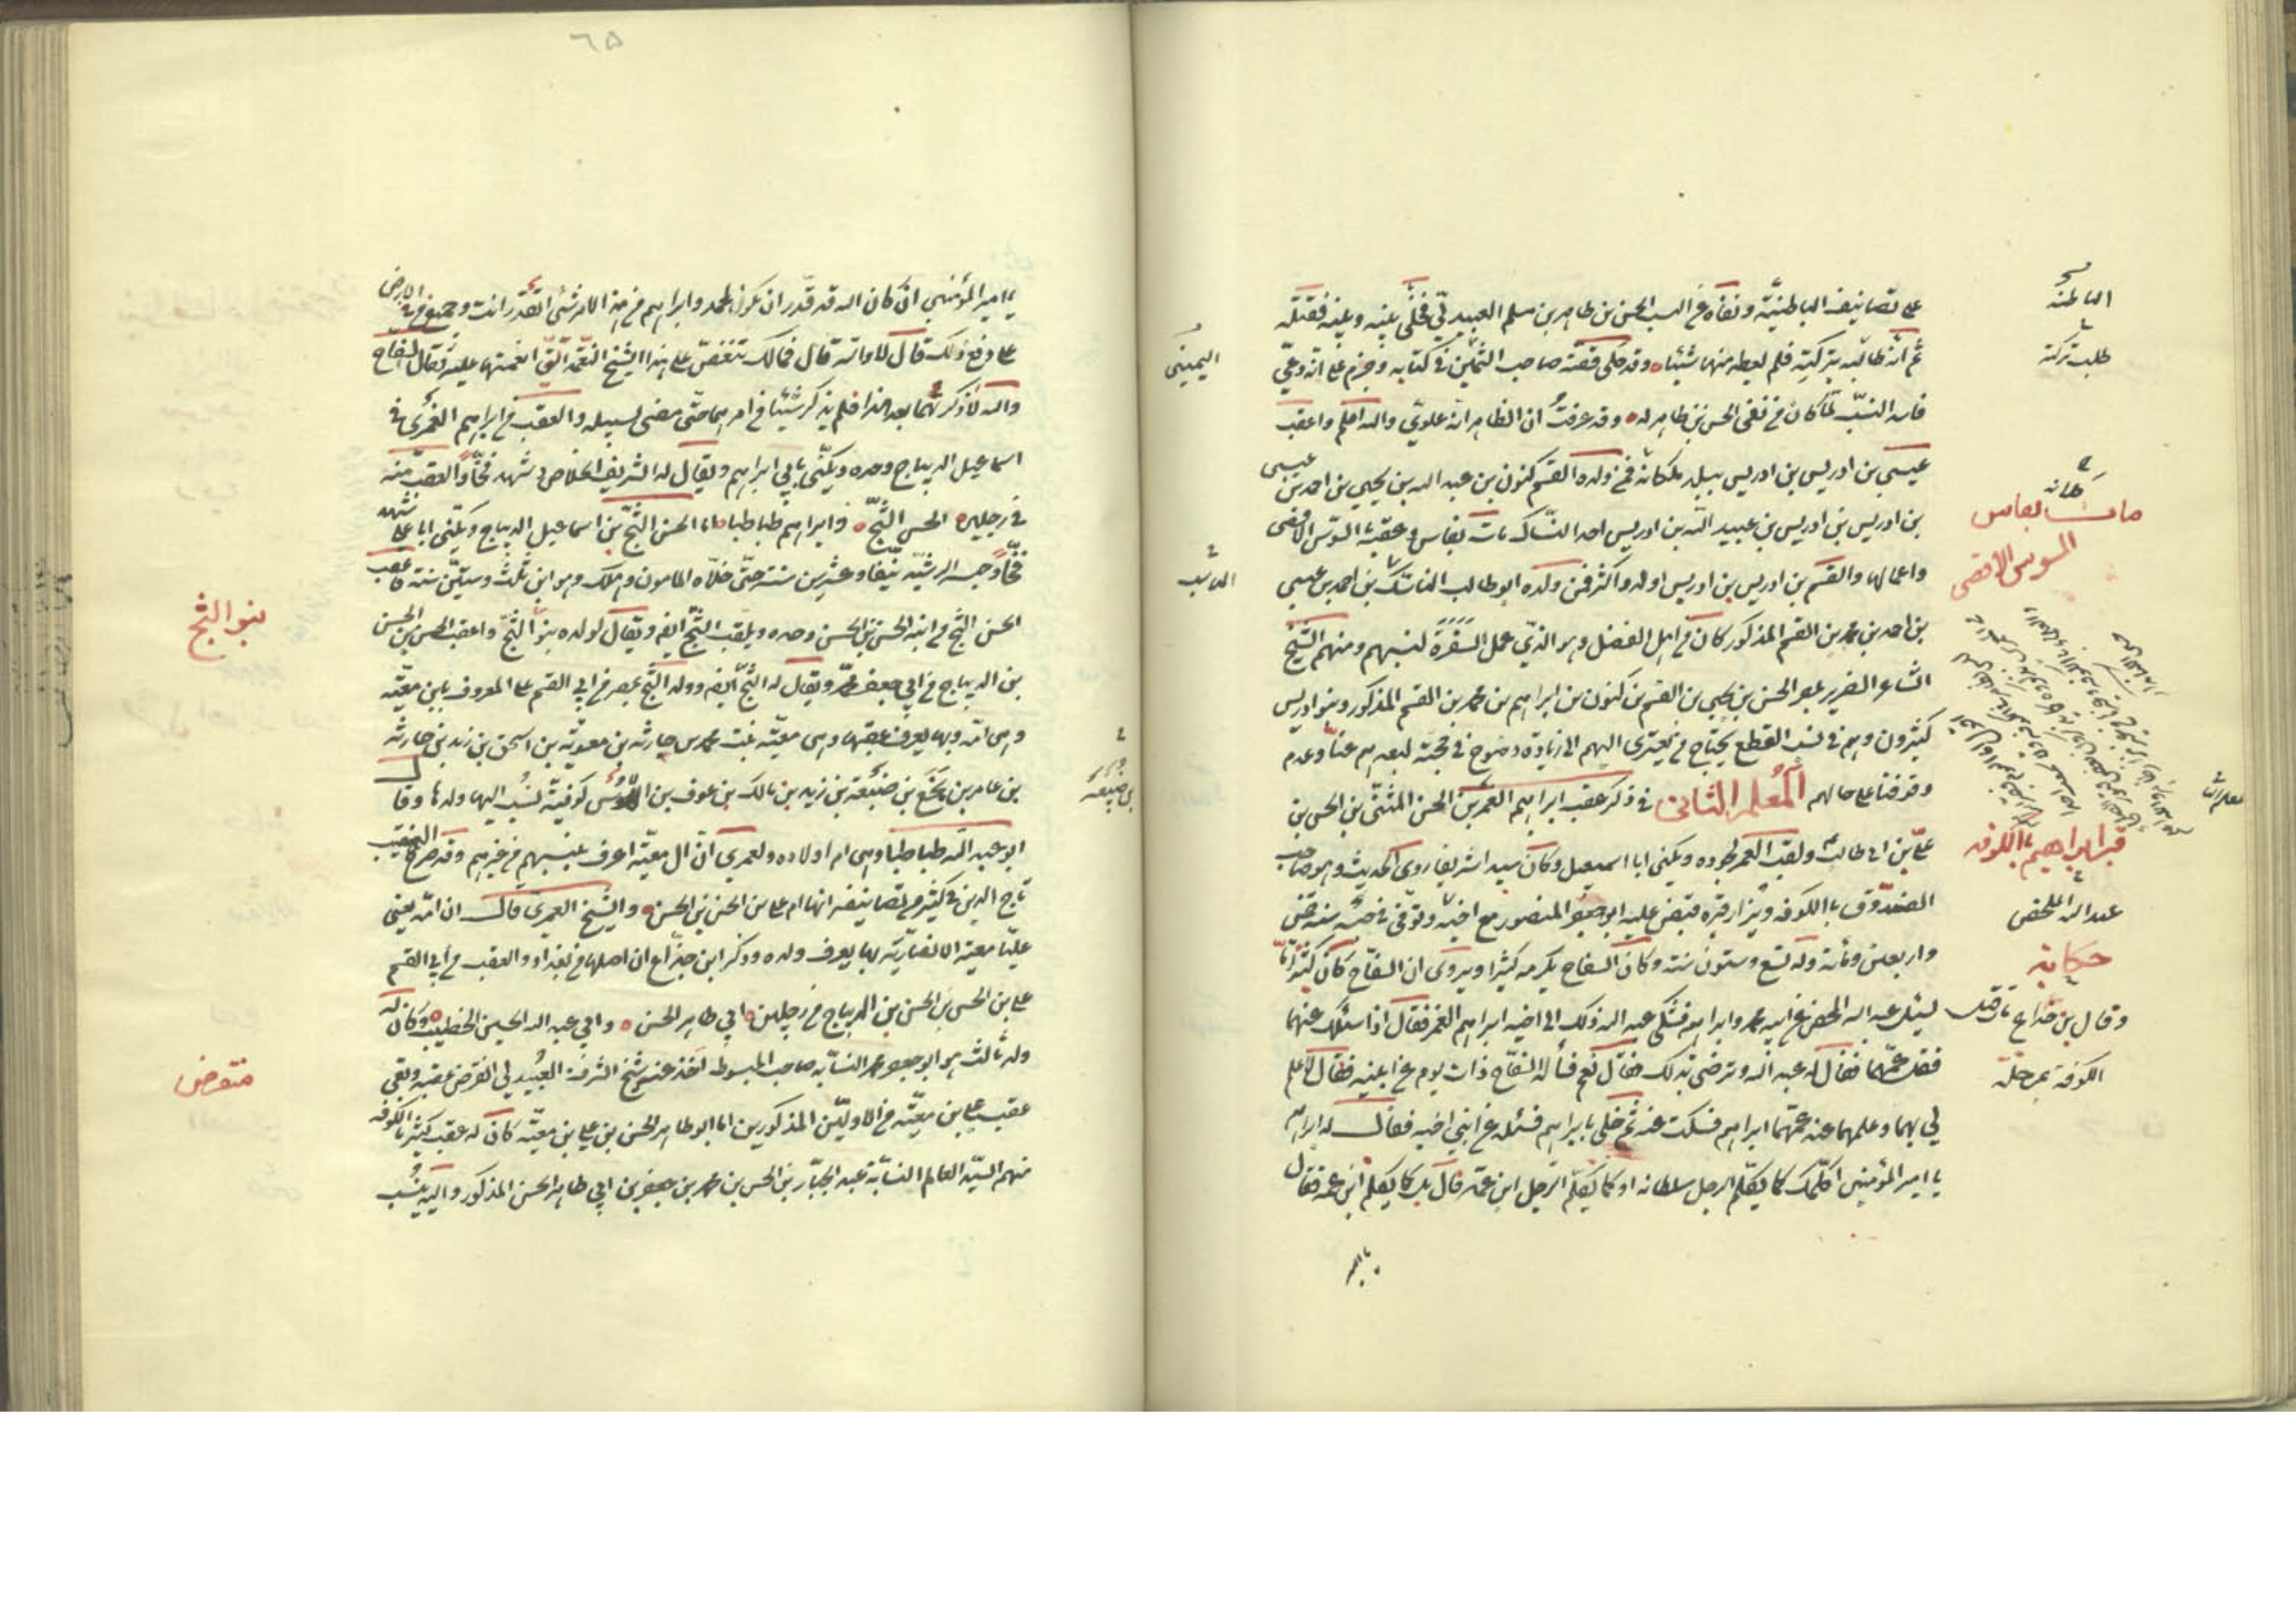 على تصانيف الباطنية ونفاه عن النسب الحسن بن طاهر بن مسلم العبيدلي فخلى بينه وبينه فقتله
ثم انه طالبه بتركته فلم يعطه منها شيئا وقد حكى قصته صاحب في كتابه وجزم على انه دعي
فاسد النسب لما كان من نفى الحسن بن طاهر له وقد عرفت ان الظاهر انه علوي والله اعلم واعقب
عيسى بن ادريس بن ادريس ببلد ملكانة فمن ولده القسم كنون بن عبد الله بن يحيى بن احمد بن عيسى
بن ادريس بن ادريس بن عبيد الله بن ادريس احد النساك مات بفاس وعقبه بالسوس الاقصى
واعمالها والقسم بن ادريس بن ادريس اولد واكثر فمن ولده ابو طالب الناسك بن احمد بن عيسى
بن احمد بن محمد بن القسم المذكور كان من اهل الفضل وهو الذي عمل السفرة لنسبهم ومنهم الشيخ
الشاعر الضرير بمصر الحسن بن يحيى بن القسم بن كنون بن ابراهيم بن محمد بن القسم المذكور وبنو ادريس
كثيرون وهم في نسب القطع يحتاج من يعتزى اليهم الى زيادة وضوح في حجته لبعدهم عنا وعدم
وقوفنا على حالهم المعلم الثانى في ذكر عقب ابراهيم الغمر بن الحسن المثنى بن الحسن بن
علي بن ابي طالب ولقب الغمر لجوده ويكنى ابا اسمعيل وكان سيدا شريفا روى الحديث وهو صاحب
الصندوق بالكوفة ويزار قبره قبض عليه ابو جعفر المنصور مع اخيه وتوفى في حبسه سنة خمس
واربعين ومائة وله تسع وستون سنة وكان السفاح يكرمه كثيرا ويروى ان السفاح كان كثيرا ما
يسئل عبد الله المحض عن ابنيه محمد وابراهيم فشكى عبد الله ذلك الى اخيه ابراهيم الغمر فقال اذا سئلك عنهما
فقل عمهما فقال له عبد الله وترضى بذلك فقال نعم فسأله السفاح ذات يوم عن ابنيه فقال لا علم
لي بهما وعلمهما عند عمهما ابراهيم فسكت عنه ثم خلى بابراهيم فسئله عن ابني اخيه فقال له ابراهيم
يا امير المؤمنين اكلمك كما يكلم الرجل سلطانه او كما يكلم الرجل ابن عمه قال بل كما يكلم ابن عمه فقال
يا امير
الباطنه
طلب تركته
ملكانه
مات بفاس
السوس الاقصى
قبر ابراهيم بالكوفه
عبد الله المحض
حكايه
وقال بن خداع
الكوفة بمرحلة
٦٥
يا امير المؤمنين ان كان الله قد قدر ان يكون لمحمد وابراهيم من هذا الامر شئ اتقدر انت وجميع من في الارض
على دفع ذلك قال لا والله قال فمالك تنغص على هذا الشيخ النعمة التي انعمتها عليه فقال السفاح
والله لا ذكرتهما بعد هذا فلم يذكر شيئا من امرهما حتى مضى لسبيله والعقب من ابراهيم الغمر في
اسماعيل الديباج وحده ويكنى بابي ابراهيم ويقال له الشريف الخلاص وشهد فخا والعقب منه
في رجلين الحسن التج وابراهيم طباطبا اما الحسن التج بن اسماعيل الديباج ويكنى ابا علي شهد
فخا وحبسه الرشيد نيفا وعشرين سنة حتى خلاه المامون وهلك وهو ابن ثلث وستين سنة فاعقب
الحسن التج من ابنه الحسن بن الحسن وحده ويلقب التج ايضا ويقال لولده بنو التج واعقب الحسن بن الحسن
بن الديباج من ابي جعفر محمد ويقال له التج ايضا وولد التج بمصر من ابي القسم علي المعروف بابن معية
وهي امه وبها يعرف عقبها وهي معية بنت محمد بن حارثة بن معوية بن اسحق بن زيد بن حارثة
بن عامر بن مجمع بن ضبيعة بن زيد بن مالك بن عوف بن الاوس كوفية نسب اليها ولدها وقال
ابو عبد الله طباطبا وهي ام اولاده ولعمري ان ال معية اعرف بنسبهم من غيرهم وقد صرح النقيب
تاج الدين في كثير من تصانيفه انها ام علي بن الحسن بن الحسن والشيخ العمري قال ان امه يعني
عليا معية الانصارية بها يعرف ولده وذكر ابن خداع ان اصلها من بغداد والعقب من ابي القسم
علي بن الحسن بن الحسن بن الديباج من رجلين ابي طاهر الحسن وابي عبد الله الحسين الخطيب وكان له
ولد ثالث هو ابو جعفر محمد النسابه صاحب المبسوط اخذ عنه شيخ الشرف العبيدلي انقرض عقبه وبقي
عقب علي بن معيه من الاولين المذكورين اما ابو طاهر الحسن بن علي بن معيه كان له عقب كثير بالكوفه
منهم السيد العالم النسابة عبد الجبار بن الحسن بن محمد بن جعفر بن ابي طاهر الحسن المذكور واليه ينسب
بنو التج
منقرض